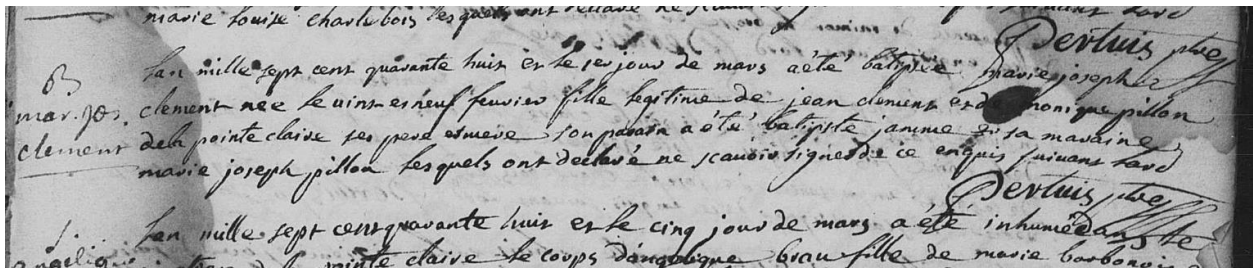 marie louise charlebois lesquels ont declaré ne scavoir suivant lord
Pertuis ptre
B
mar. jos.
clement
Lan mille sept cent quarante huit et le 1er jour de mars a été batisée marie joseph
clement née le vint et neuf fevrier fille legitime de jean clement et de monique pillon
de la pointe claire ses pere et mere son parain a été batiste jamme et sa maraine
marie joseph pillon lesquels ont declaré ne scavoir signer de ce enquis suivant lord
Pertuis ptre
Lan mille sept cent quarante huit et le cinq jour de mars a été inhumé dans le
angelique
pointe claire le corps dangelique brau fille de marie